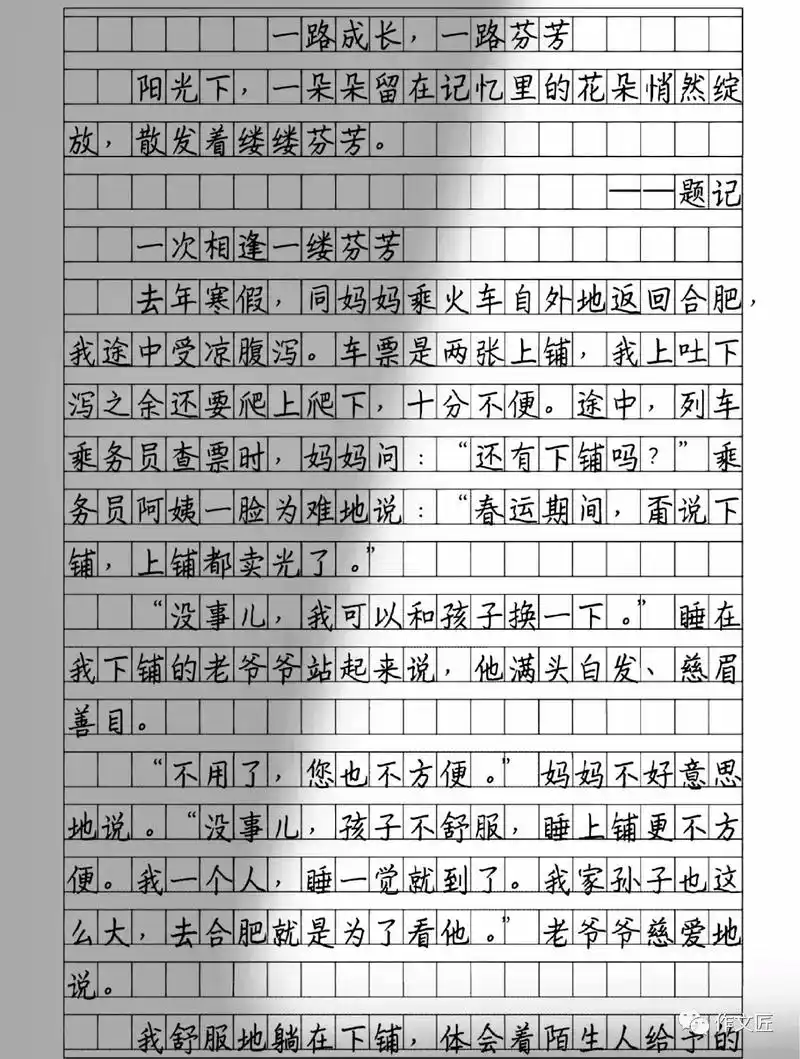 一路成长，一路芬芳
阳光下，一朵朵留在记忆里的花朵悄然绽
放，散发着缕缕芬芳。
——题记
一次相逢一缕芬芳
去年寒假，同妈妈乘火车自外地返回合肥，
我途中受凉腹泻。车票是两张上铺，我上吐下
泻之余还要爬上爬下，十分不便。途中，列车
乘务员查票时，妈妈问：“还有下铺吗？”乘
务员阿姨一脸为难地说：“春运期间，甭说下
铺，上铺都卖光了。”
“没事儿，我可以和孩子换一下。”睡在
我下铺的老爷爷站起来说，他满头白发、慈眉
善目。
“不用了，您也不方便。”妈妈不好意思
地说。“没事儿，孩子不舒服，睡上铺更不方
便。我一个人，睡一觉就到了。我家孙子也这
么大，去合肥就是为了看他。”老爷爷慈爱地
说。
我舒服地躺在下铺，体会着陌生人给予的
作文匠